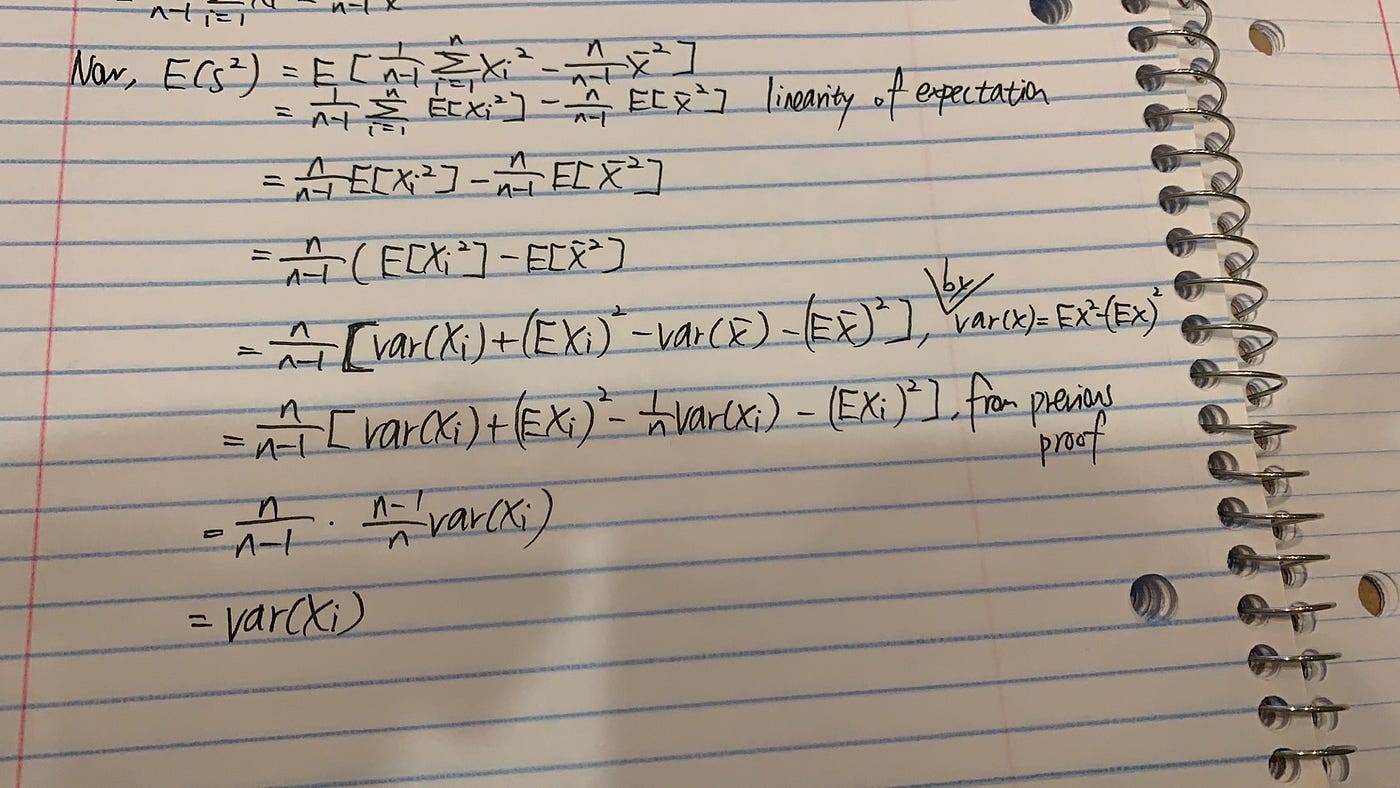 Now, E(s²) = E[1/(n-1) Σ_{i=1}^{n} Xi² - n/(n-1) x̄²]
= 1/(n-1) Σ_{i=1}^{n} E[Xi²] - n/(n-1) E[x̄²] linearity of expectation
= n/(n-1) E[Xi²] - n/(n-1) E[X̄²]
= n/(n-1) (E[Xi²] - E[x̄²]
= n/(n-1) [var(Xi) + (EXi)² - var(x̄) - (EX̄)²], by var(x) = EX² - (EX)²
= n/(n-1) [var(Xi) + (EXi)² - 1/n var(Xi) - (EXi)²], from previous
proof
= n/(n-1) · (n-1)/n var(Xi)
= var(Xi)